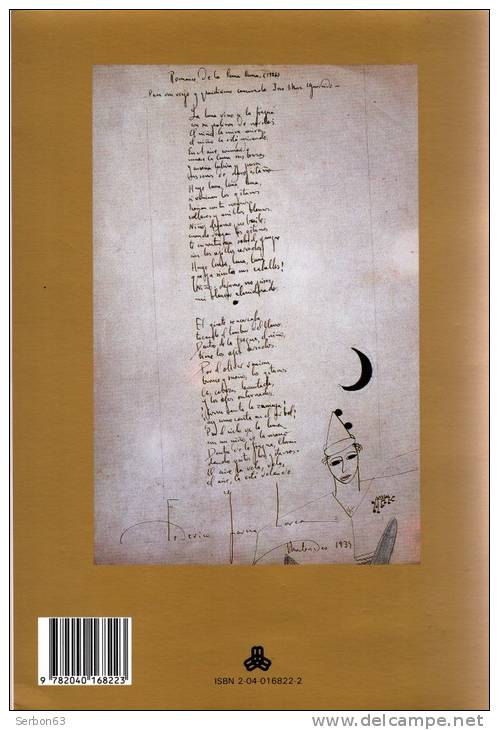 Romance De la luna luna. (1924)
La luna vino a la fragua
con su polisón de nardos;
El niño la mira mira;
el niño la está mirando.
En el aire conmovido
mueve la luna sus brazos
y enseña, lúbrica y pura,
sus senos de duro estaño.
Huye luna, luna, luna,
si vinieran los gitanos
harían con tu corazón
collares y anillos blancos.
Niño, dejame, que baile;
cuando vengan los gitanos
te encontrarán sobre el yunque
con los ojillos cerrados.
Huye luna, luna, luna
que ya siento sus caballos!
Niño, dejame, no pises
mi blancor almidonado.
El jinete se acercaba
tocando el tambor del llano.
Dentro de la fragua, el niño,
tiene los ojos cerrados.
Por el olivar venían
bronce y sueño, los gitanos
las cabezas levantadas
y los ojos entornados.
¡Cómo canta la zumaya!
¡ay como canta en el árbol!
Por el cielo va la luna
con un niño, de la mano
Dentro de la fragua, lloran
dando gritos, los gitanos.
El aire la vela, vela,
el aire, la está velando.
Federico García Lorca
Montevideo 1934
9 782040 168223
ISBN 2-04-016822-2
Serbon63
www.delcampe.net